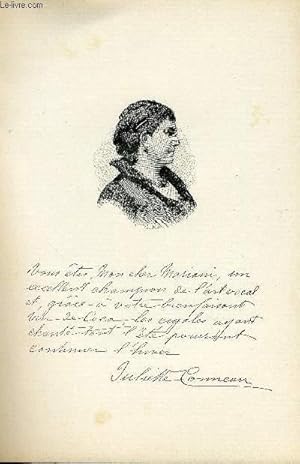 Le-livre.com
Vous êtes, Mon cher Mariani, un
excellent champion de l'art vocal
et, grâce à votre bienfaisant
vin de Coca les cigales ayant
chanté tout l'été pourront
continuer l'hiver
Juliette Conneau